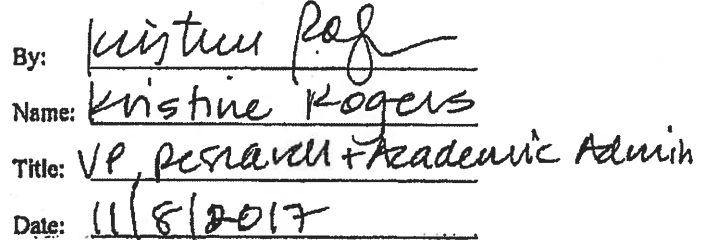 By: Kristine Rog
Name: Kristine Rogers
Title: VP, Research + Academic Admin
Date: 11/8/2017